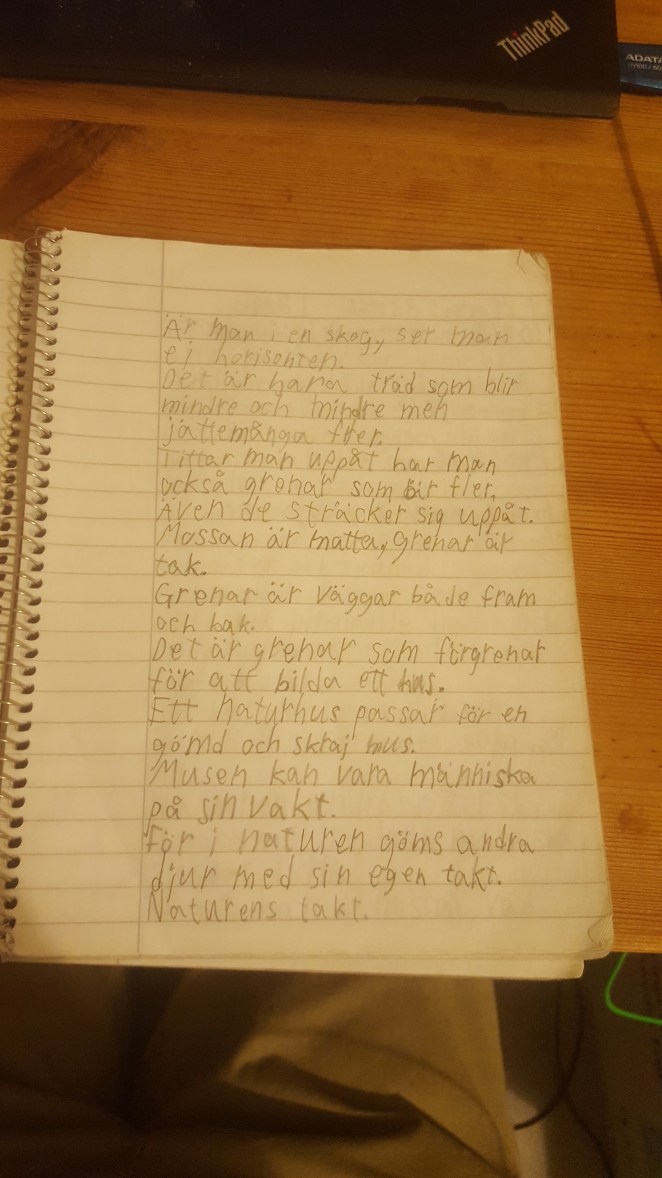 ThinkPad
ADATA
Är man i en skog, ser man
ej horisonten.
Det är bara träd som blir
mindre och mindre men
jättemånga fler.
Tittar man uppåt har man
också grenar som är fler.
Även de sträcker sig uppåt.
Mossan är matta, grenar är
tak.
Grenar är väggar både fram
och bak.
Det är grenar som förgrenar
för att bilda ett hus.
Ett naturhus passar för en
gömd och skraj mus.
Musen kan vara människa
på sin vakt.
För i naturen göms andra
djur med sin egen takt.
Naturens takt.